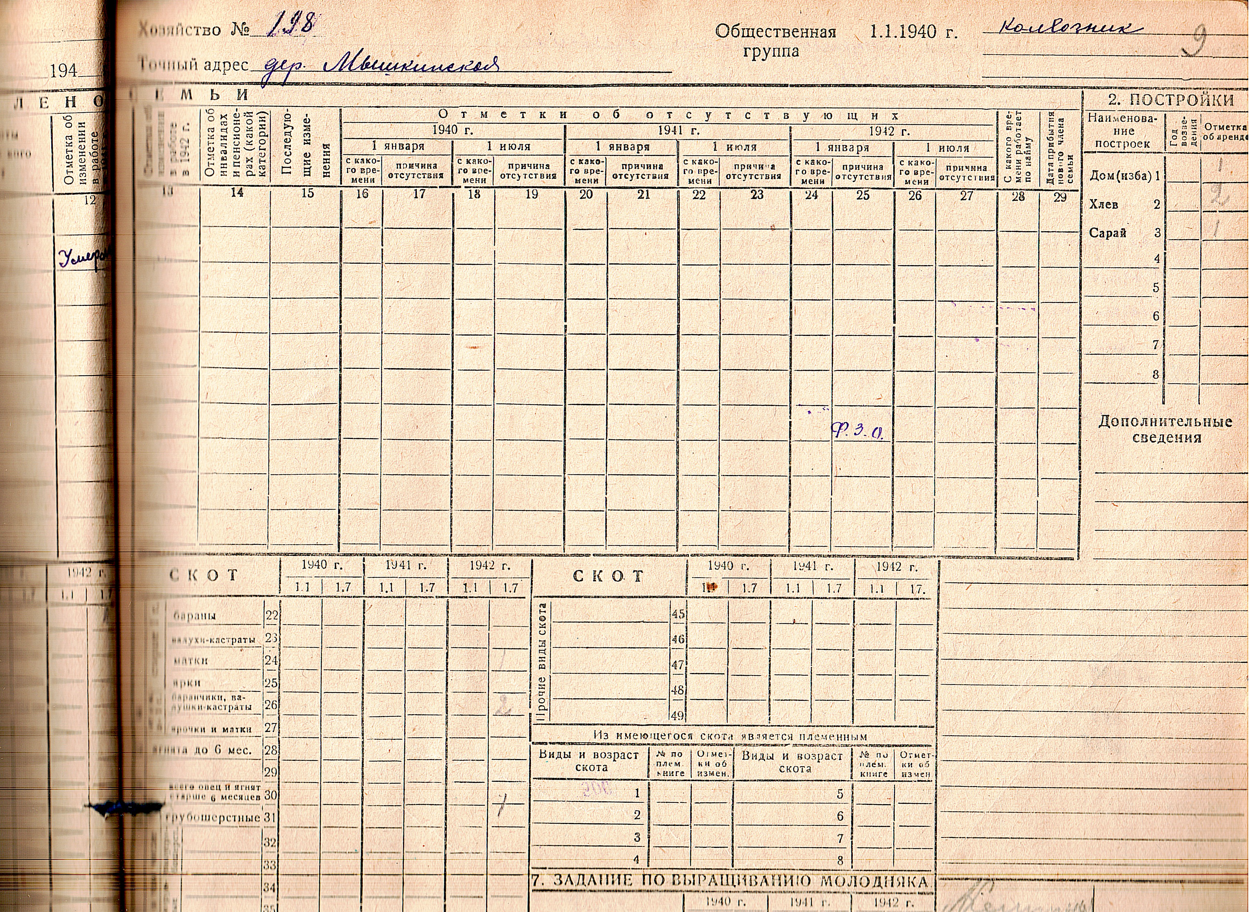 Хозяйство № 198
Общественная группа 1.1.1940 г. колхозник
9
Точный адрес дер. Мышкинской
194
ЛЕНО
Отметка об изменении в работе
12
Умер
ЕМЬИ
в 1942 г.
13
Отметка об инвалидах и пенсионерах (какой категории)
14
Последующие изменения
15
Отметки об отсутствующих
1940 г. 1941 г. 1942 г.
1 января 1 июля 1 января 1 июля 1 января 1 июля
с какого времени причина отсутствия с какого времени причина отсутствия с какого времени причина отсутствия с какого времени причина отсутствия с какого времени причина отсутствия с какого времени причина отсутствия
16 17 18 19 20 21 22 23 24 25 26 27
С какого времени работает по найму
28
Дата прибытия нового члена семьи
29
Ф.З.О.
2. ПОСТРОЙКИ
Наименование построек
Год возведения
Отметка об аренде
Дом(изба) 1 1
Хлев 2 2
Сарай 3 1
4
5
6
7
8
Дополнительные сведения
1942 г.
1.1
СКОТ
1940 г. 1941 г. 1942 г.
1.1 1.7 1.1 1.7 1.1 1.7
бараны 22
валухи-кастраты 23
матки 24
ярки 25
баранчики, валушки-кастраты 26 2
ярочки и матки 27
ягнята до 6 мес. 28
29
всего овец и ягнят старше 6 месяцев 30
грубошерстные 31
32
33
34
35
СКОТ
1940 г. 1941 г. 1942 г.
1.1 1.7 1.1 1.7 1.1 17.
Прочие виды скота
45
46
47
48
49
Из имеющегося скота является племенным
Виды и возраст скота № по плем. книге Отметки об измен. Виды и возраст скота № по плем. книге Отметки об измен
1 5
2 6
3 7
4 8
7. ЗАДАНИЕ ПО ВЫРАЩИВАНИЮ МОЛОДНЯКА
1940 г. 1941 г. 1942 г.